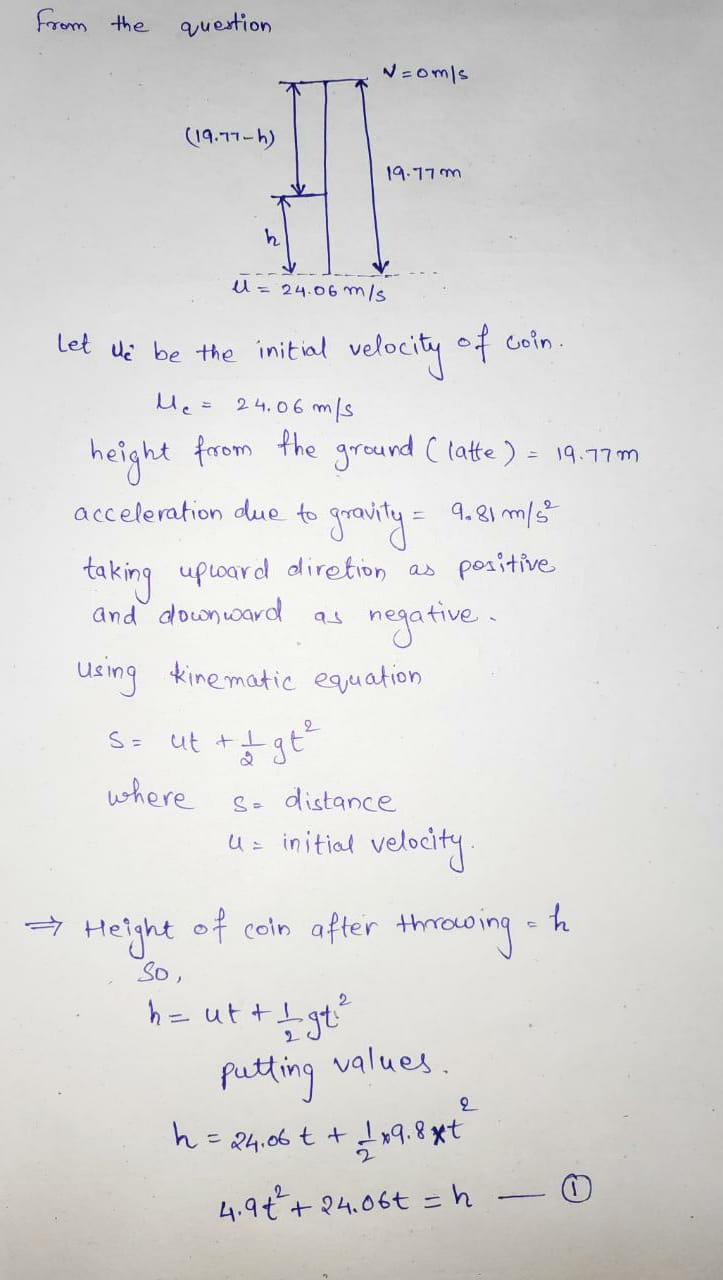 From the question
V = 0 m/s
(19.77-h)
19.77 m
h
u = 24.06 m/s
Let uc be the initial velocity of coin.
uc = 24.06 m/s
height from the ground (latte) = 19.77 m
acceleration due to gravity = 9.81 m/s²
taking upward diretion as positive
and downward as negative.
Using kinematic equation
S = ut + 1/2 gt²
where S = distance
u = initial velocity.
⇒ Height of coin after throwing = h
So,
h = ut + 1/2 gt²
putting values.
h = 24.06 t + 1/2 x 9.8 x t²
4.9t² + 24.06t = h — ①